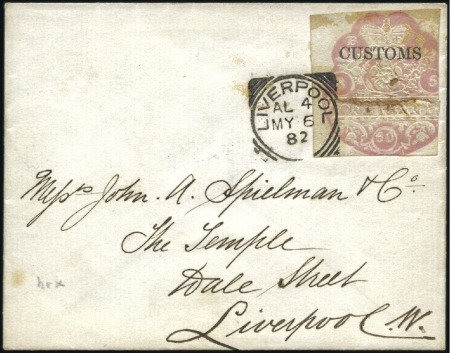 CUSTOMS
LIVERPOOL
AL 4
MY 6
82
Messrs John. A. Spielman & Co.
The Temple
Dale Street
Liverpool W.